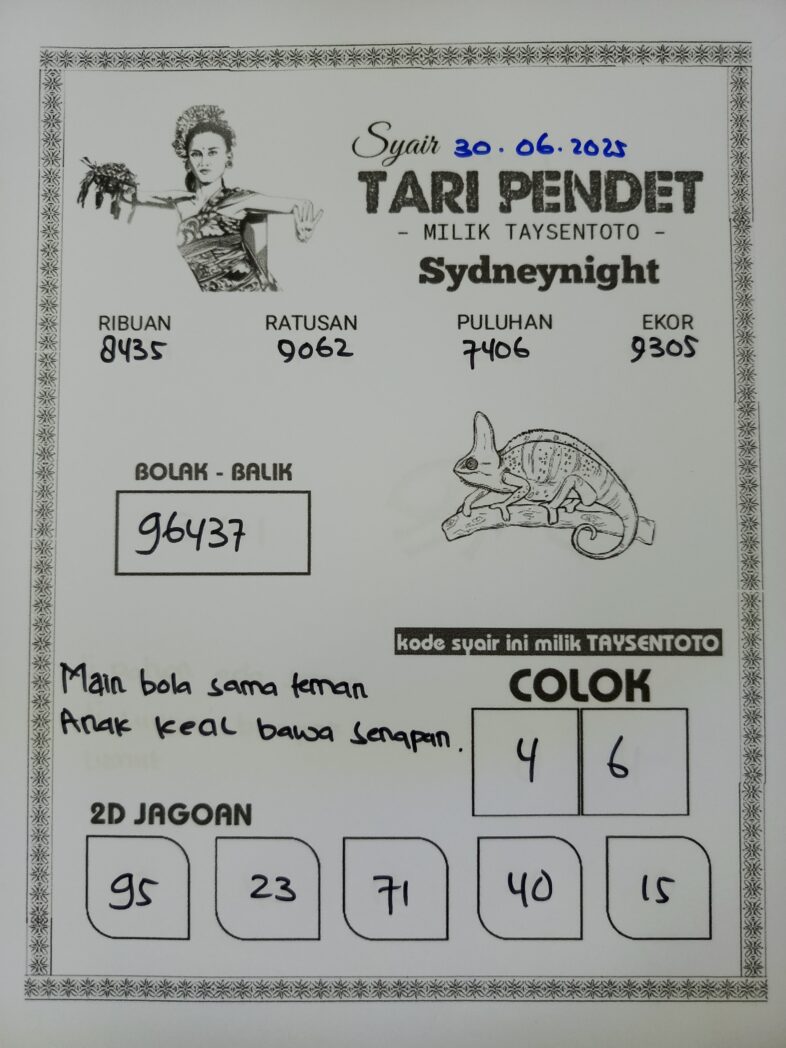 Syair 30.06.2025
TARI PENDET
- MILIK TAYSENTOTO -
Sydneynight
RIBUAN RATUSAN PULUHAN EKOR
8435 9062 7406 9305
BOLAK - BALIK
96437
kode syair ini milik TAYSENTOTO
Main bola sama teman
Anak kecil bawa senapan.
COLOK
4 6
2D JAGOAN
95 23 71 40 15